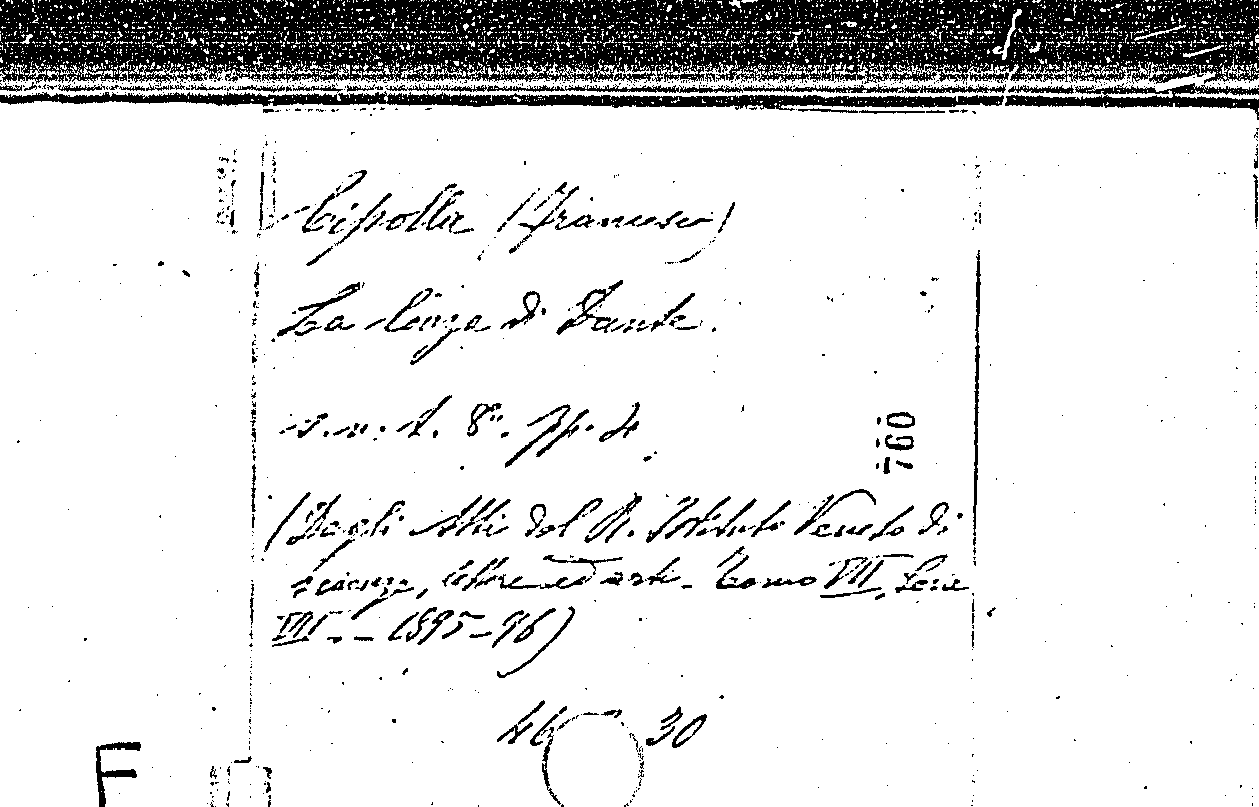 Cipolla (Francesco)
La lonza di Dante.
s. n. t. 8°. pp. 4
760
(Dagli Atti del R. Istituto Veneto di
scienze, lettere ed arti - Tomo VII, Serie
VII. - 1895-96)
46 30
F